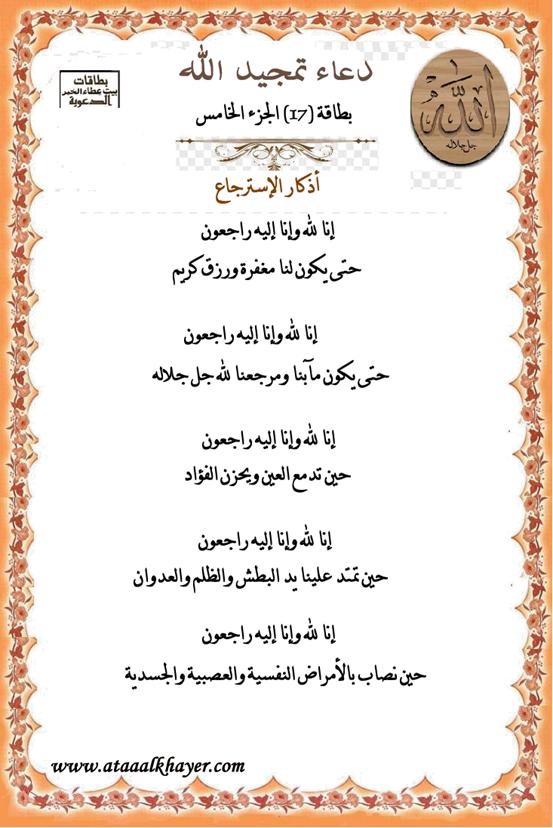 دعاء تمجيد الله
بطاقات
بيت عطاء الخير
الدعوية
الله
جل جلاله
بطاقة (17) الجزء الخامس
أذكار الإسترجاع
إنا لله وإنا إليه راجعون
حتى يكون لنا مغفرة ورزق كريم
إنا لله وإنا إليه راجعون
حتى يكون مآبنا ومرجعنا لله جل جلاله
إنا لله وإنا إليه راجعون
حين تدمع العين ويحزن الفؤاد
إنا لله وإنا إليه راجعون
حين تمتد علينا يد البطش والظلم والعدوان
إنا لله وإنا إليه راجعون
حين نصاب بالأمراض النفسية والعصبية والجسدية
www.ataaalkhayer.com